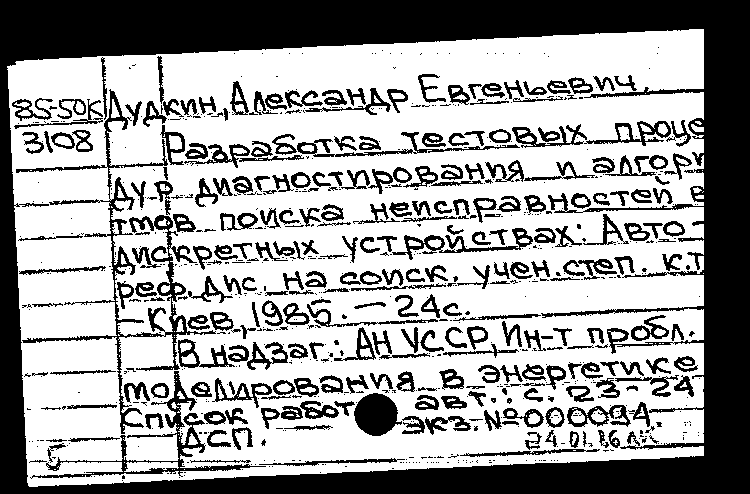 85-50К Дудкин, Александр Евгеньевич.
3108 Разработка тестовых проце
дур диагностирования и алгори
тмов поиска неисправностей в
дискретных устройствах: Авто-
реф. дис. на соиск. учен. степ. к.т
—Киев, 1985. — 24с.
В надзаг.: АН УССР, Ин-т пробл.
моделирования в энергетике
Список работ авт.: с. 23-24
Экз. № 000094.
ДСП.
24.01.86
5